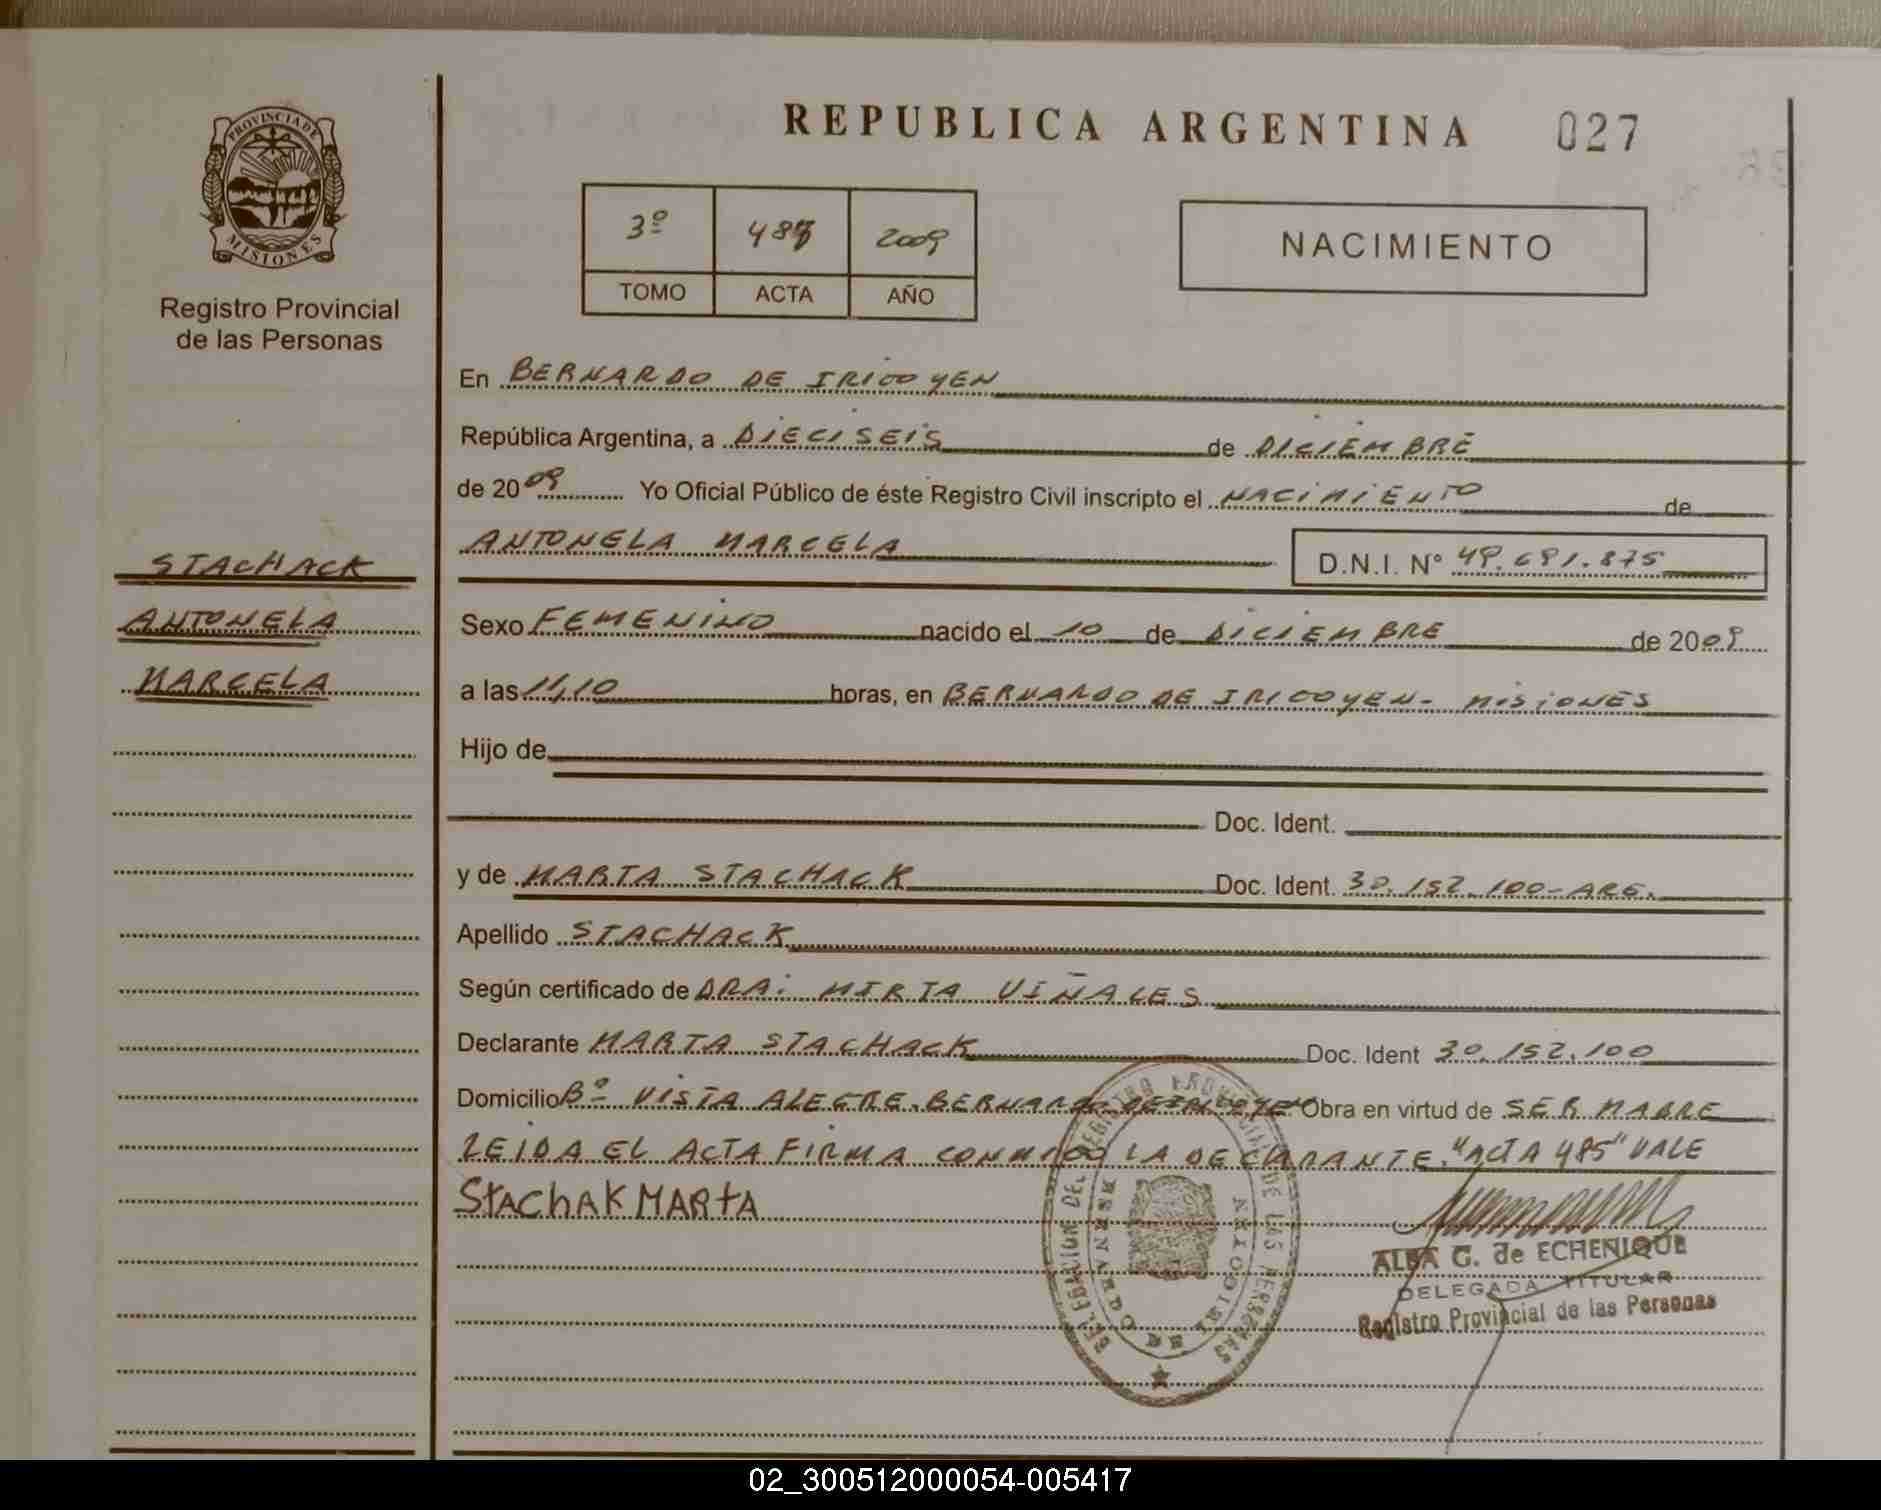 PROVINCIA DE
MISIONES
Registro Provincial
de las Personas
STACHACK
ANTONELA
MARCELA
REPUBLICA ARGENTINA 027
3º 2009
TOMO ACTA AÑO
NACIMIENTO
En BERNARDO DE IRIGOYEN
República Argentina, a DIECISEIS de DICIEMBRE
de 2009 Yo Oficial Público de éste Registro Civil inscripto el NACIMIENTO de
ANTONELA MARCELA D.N.I. Nº 49.691.875
Sexo FEMENINO nacido el 10 de DICIEMBRE de 2009
a las 11,10 horas, en BERNARDO DE IRIGOYEN - MISIONES
Hijo de
Doc. Ident.
y de MARTA STACHACK Doc. Ident. 30.152.100-ARG.
Apellido STACHACK
Según certificado de DRA: MIRTA VIÑALES
Declarante MARTA STACHACK Doc. Ident 30.152.100
Domicilio Bº VISTA ALEGRE. BERNARDO DE IRIGOYEN Obra en virtud de SER MADRE
LEIDA EL ACTA FIRMA CONMIGO LA DECLARANTE. "ACTA 485" VALE
StAChAK MARtA
ALBA G. de ECHENIQUE
DELEGADA TITULAR
Registro Provincial de las Personas
02_300512000054-005417